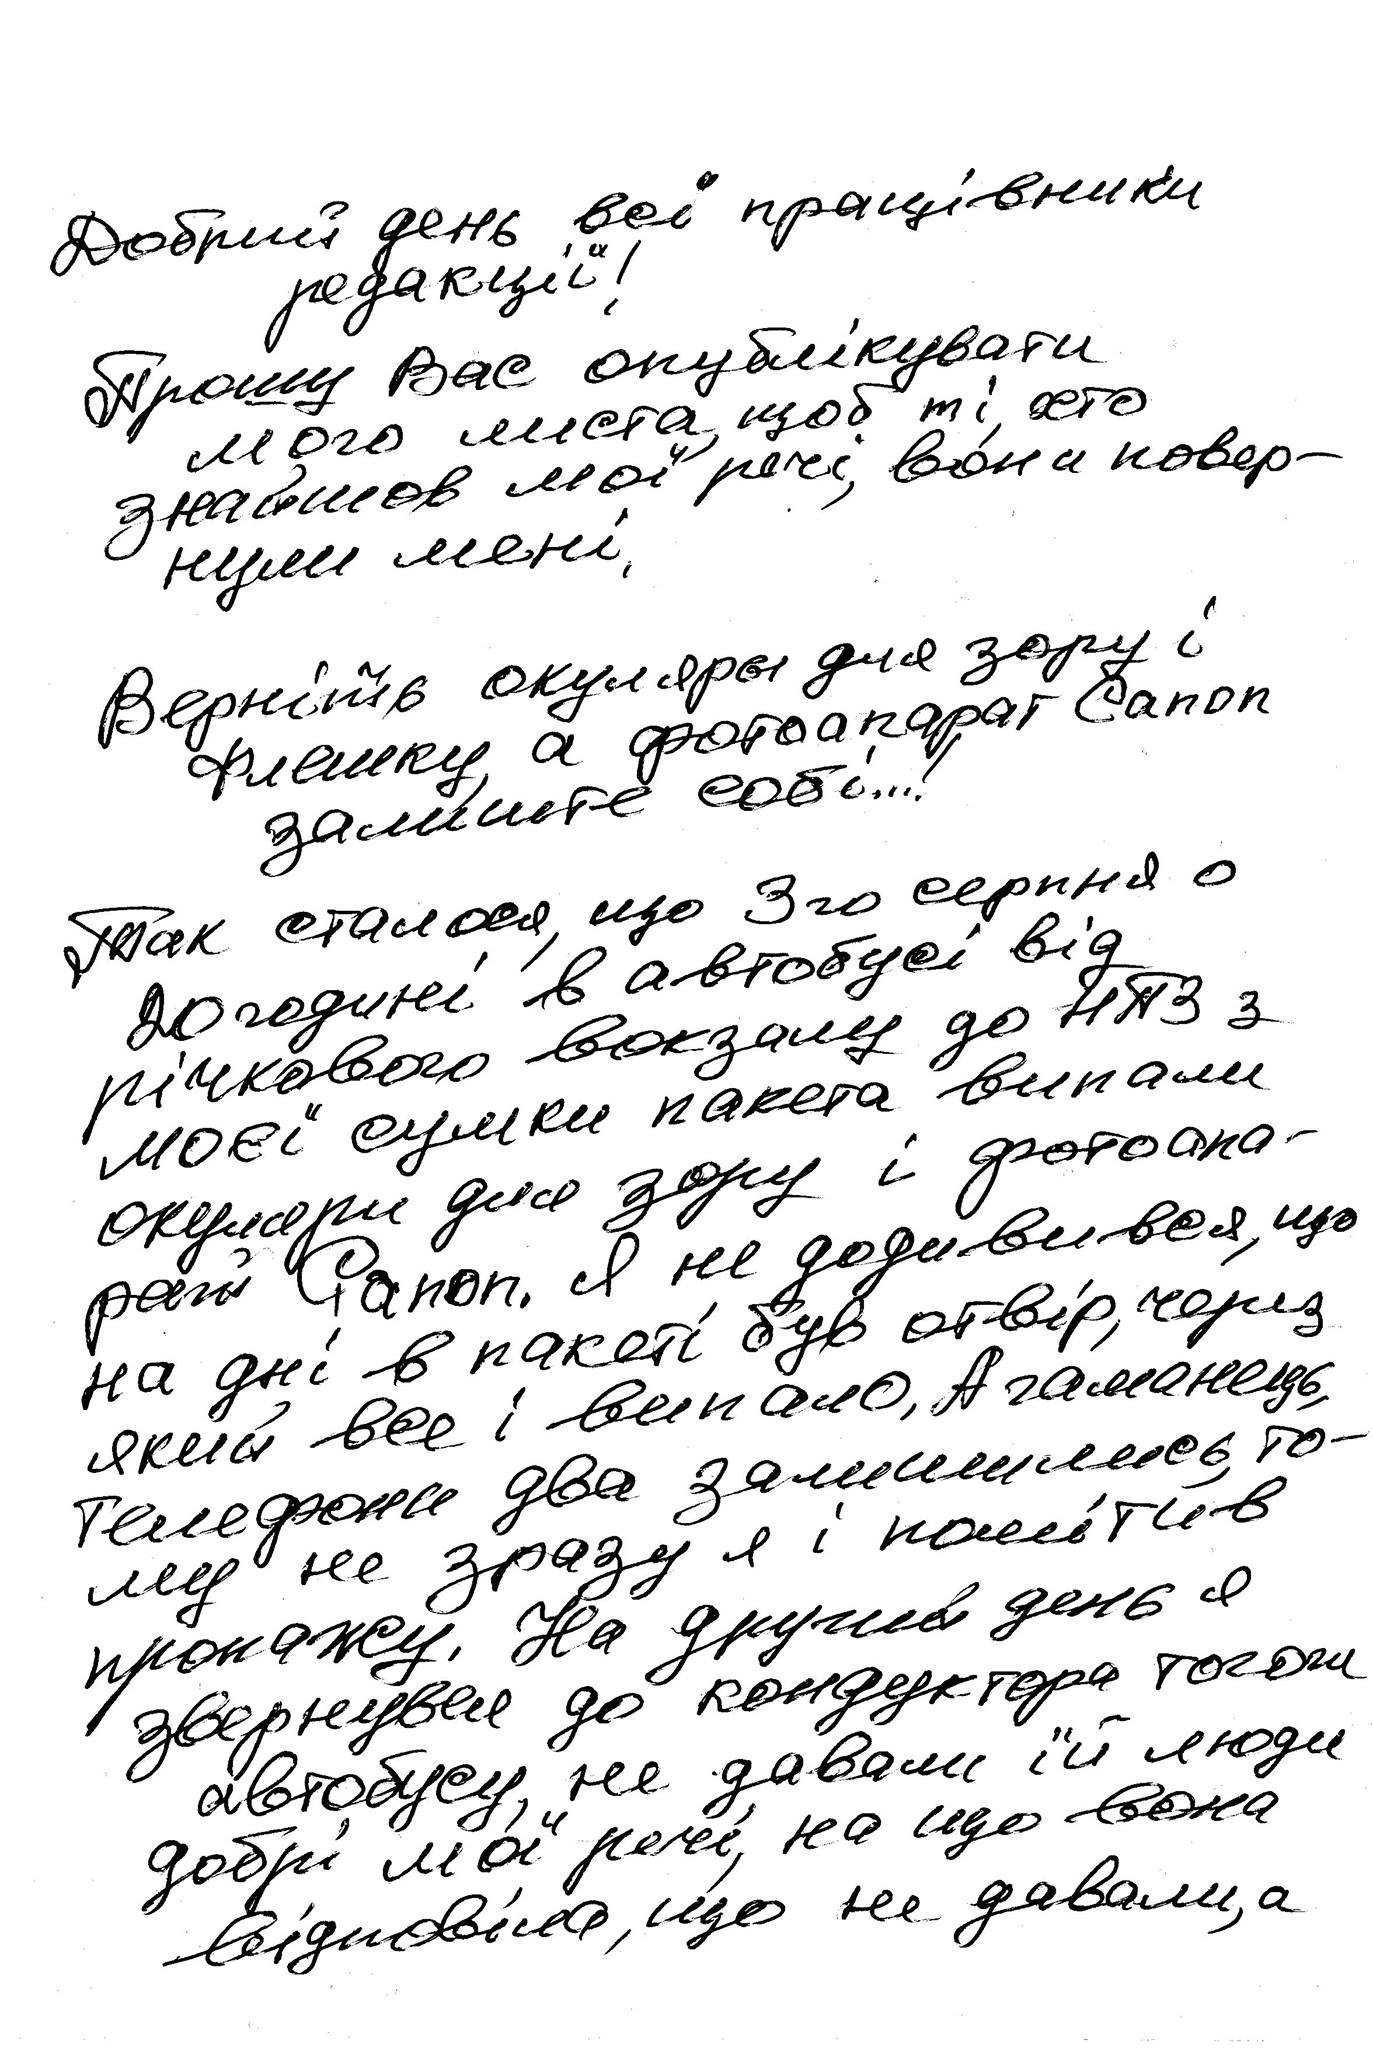 Добрий день всі працівники
редакції!
Прошу Вас опублікувати
мого листа, щоб ті, хто
знайшов мої речі, вони повер-
нули мені.
Верніть окуляры для зору і
флешку, а фотоапарат Canon
залиште собі...!
Так сталося, що 3го серпня о
20 годині в автобусі від
річкового вокзалу до НПЗ з
моєї сумки пакета випали
окуляри для зору і фотоапа-
рат Canon. Я не додивився, що
на дні в пакеті був отвір, через
який все і випало. А гаманець,
телефони два залишились, то-
му не зразу я і помітив
пропажу. На другий день я
звернувся до кондуктора тогож
автобусу, не давали їй люди
добрі мої речі, на що вона
відповіла, що не давали, а